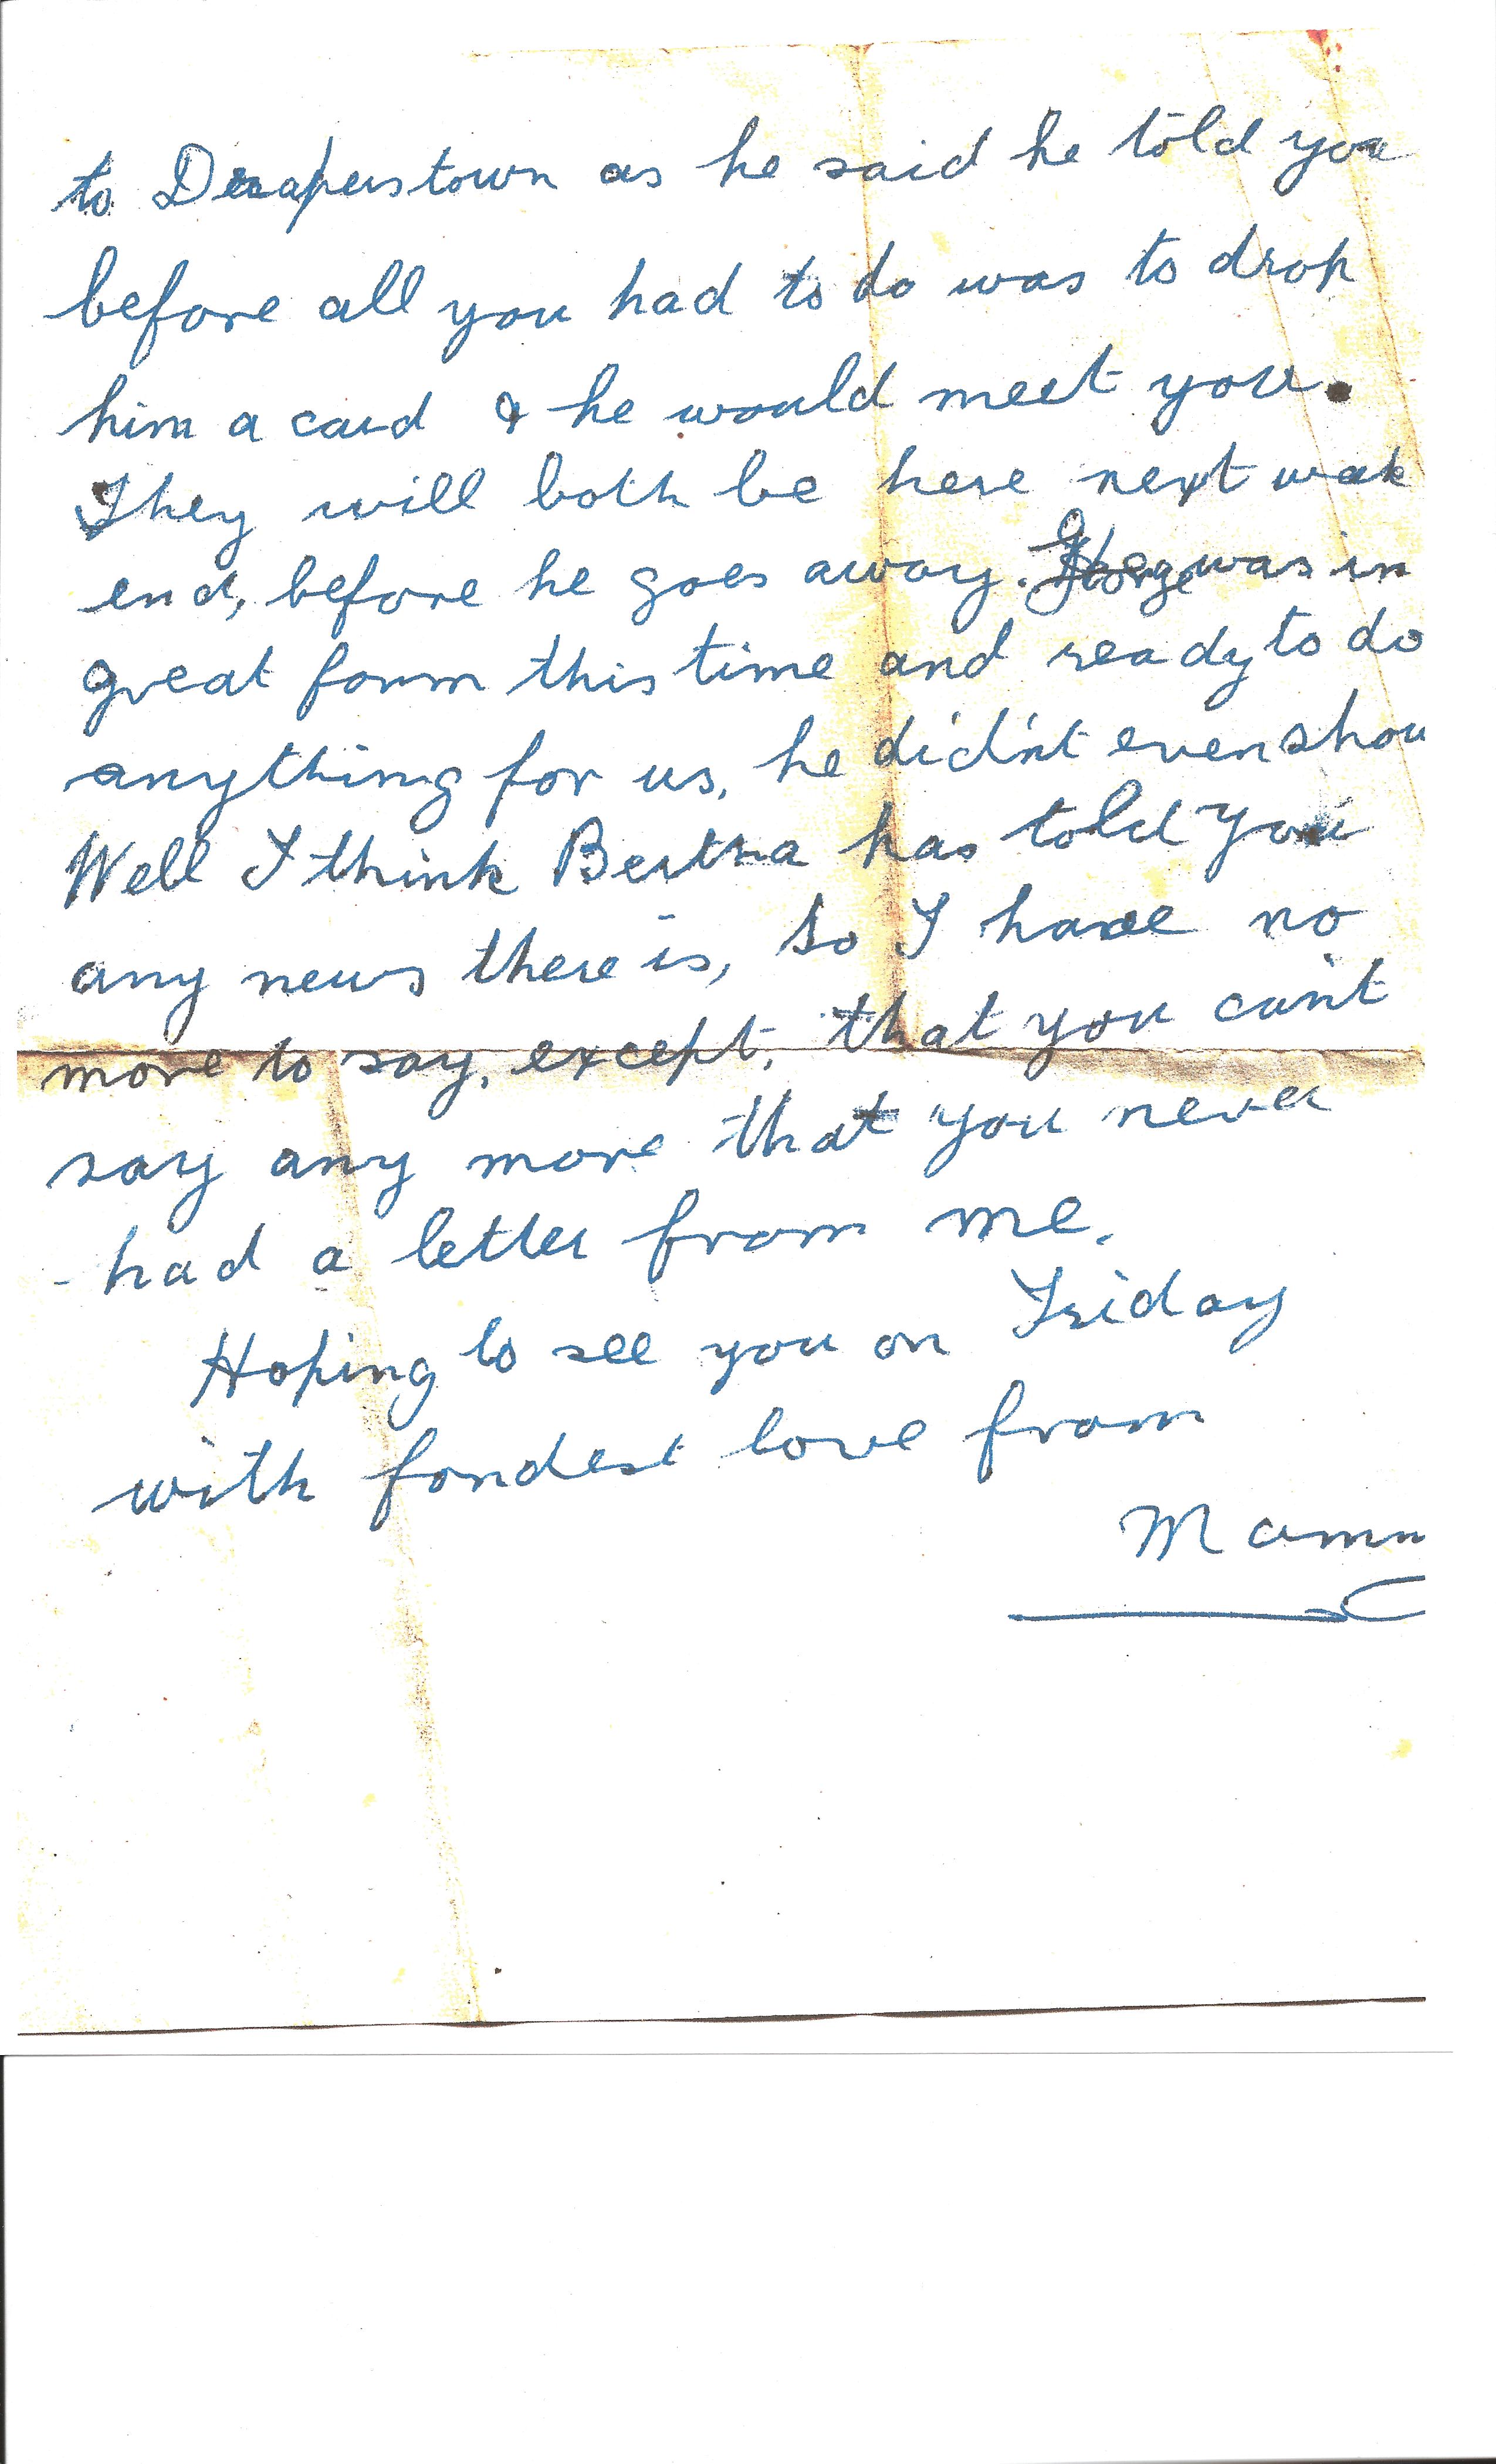 to Draperstown as he said he told you
before all you had to do was to drop
him a card & he would meet you.
They will both be here next week
end, before he goes away. George was in
great form this time and ready to do
anything for us, he did'nt even shou
Well I think Bertha has told you
any news there is, so I have no
more to say, except, that you can't
say any more that you never
had a letter from me.
Hoping to see you on Friday
with fondest love from
Mamm